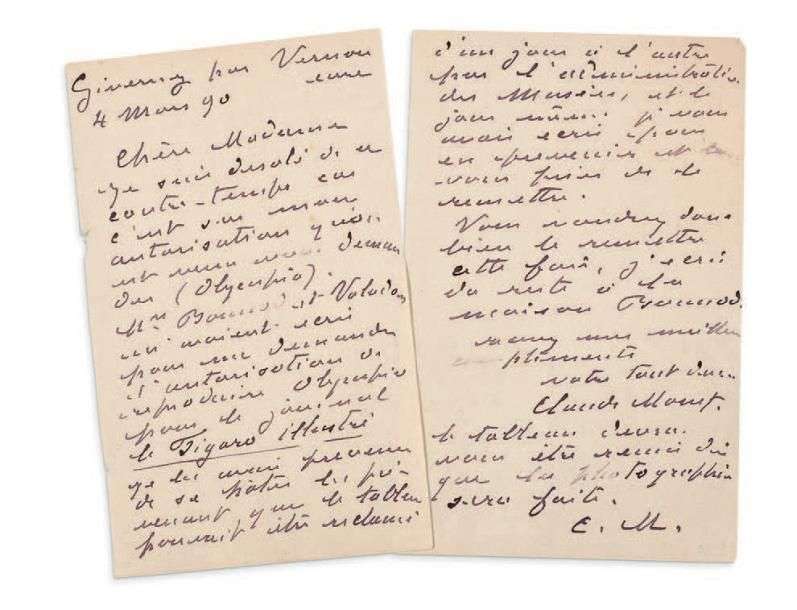 Giverny par Vernon
eure
4 Mars 90
Chère Madame
Je suis desolé de ce
contre-temps car
c'est sur mon
autorisation qu'on
est venu vous deman
der (Olympia).
Mrs Boussod et Valadon
m'avaient ecrit
pour me demander
l'autorisation de
reproduire Olympia
pour le journal
le Figaro illustré
Je les avais prevenu
de se hâter les pré-
venant que le tableau
pouvait être reclamé
d'un jour à l'autre
par l'administration
des Musées, et le
jour même je vous
avais ecrit pour
en prevenir et
vous prier de le
remettre.
Vous voudrez donc
bien le remettre
cette fois, j'ecris
du reste à la
maison Boussod.
mes meilleurs
compliments
votre tout dévoué
Claude Monet.
le tableau devra
vous être remis dès
que la photographie
sera faite.
C. M.